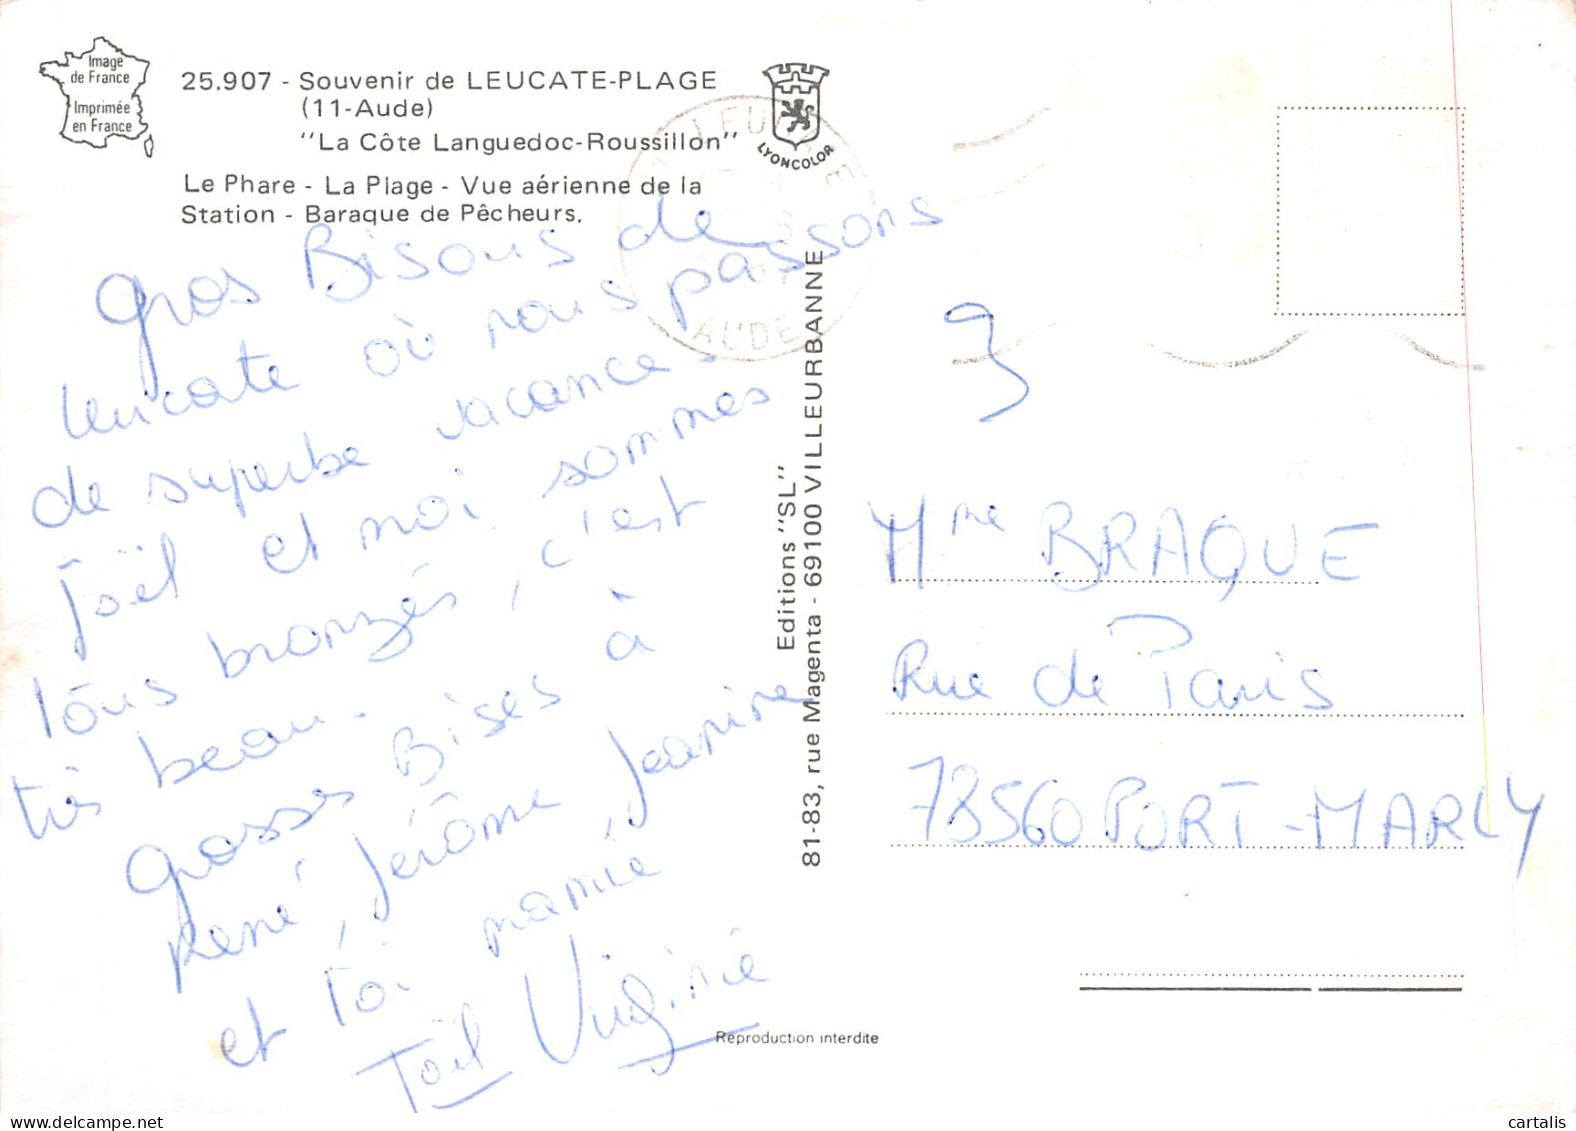 Image
de France
Imprimée
en France
25.907 - Souvenir de LEUCATE-PLAGE
(11-Aude)
"La Côte Languedoc-Roussillon"
Le Phare - La Plage - Vue aérienne de la
Station - Baraque de Pêcheurs.
LYONCOLOR
AUDE
Gros Bisous de
leucate où nous passons
de superbe vacance.
Joël et moi sommes
tous bronzés, c'est
très beau.
grosses Bises à
René, Jérôme, Jeanine
et toi mamie
Joël Virginie
Editions "SL"
81-83, rue Magenta - 69100 VILLEURBANNE
Mme BRAQUE
Rue de Paris
78560 PORT-MARLY
Reproduction interdite
delcampe.net
cartalis